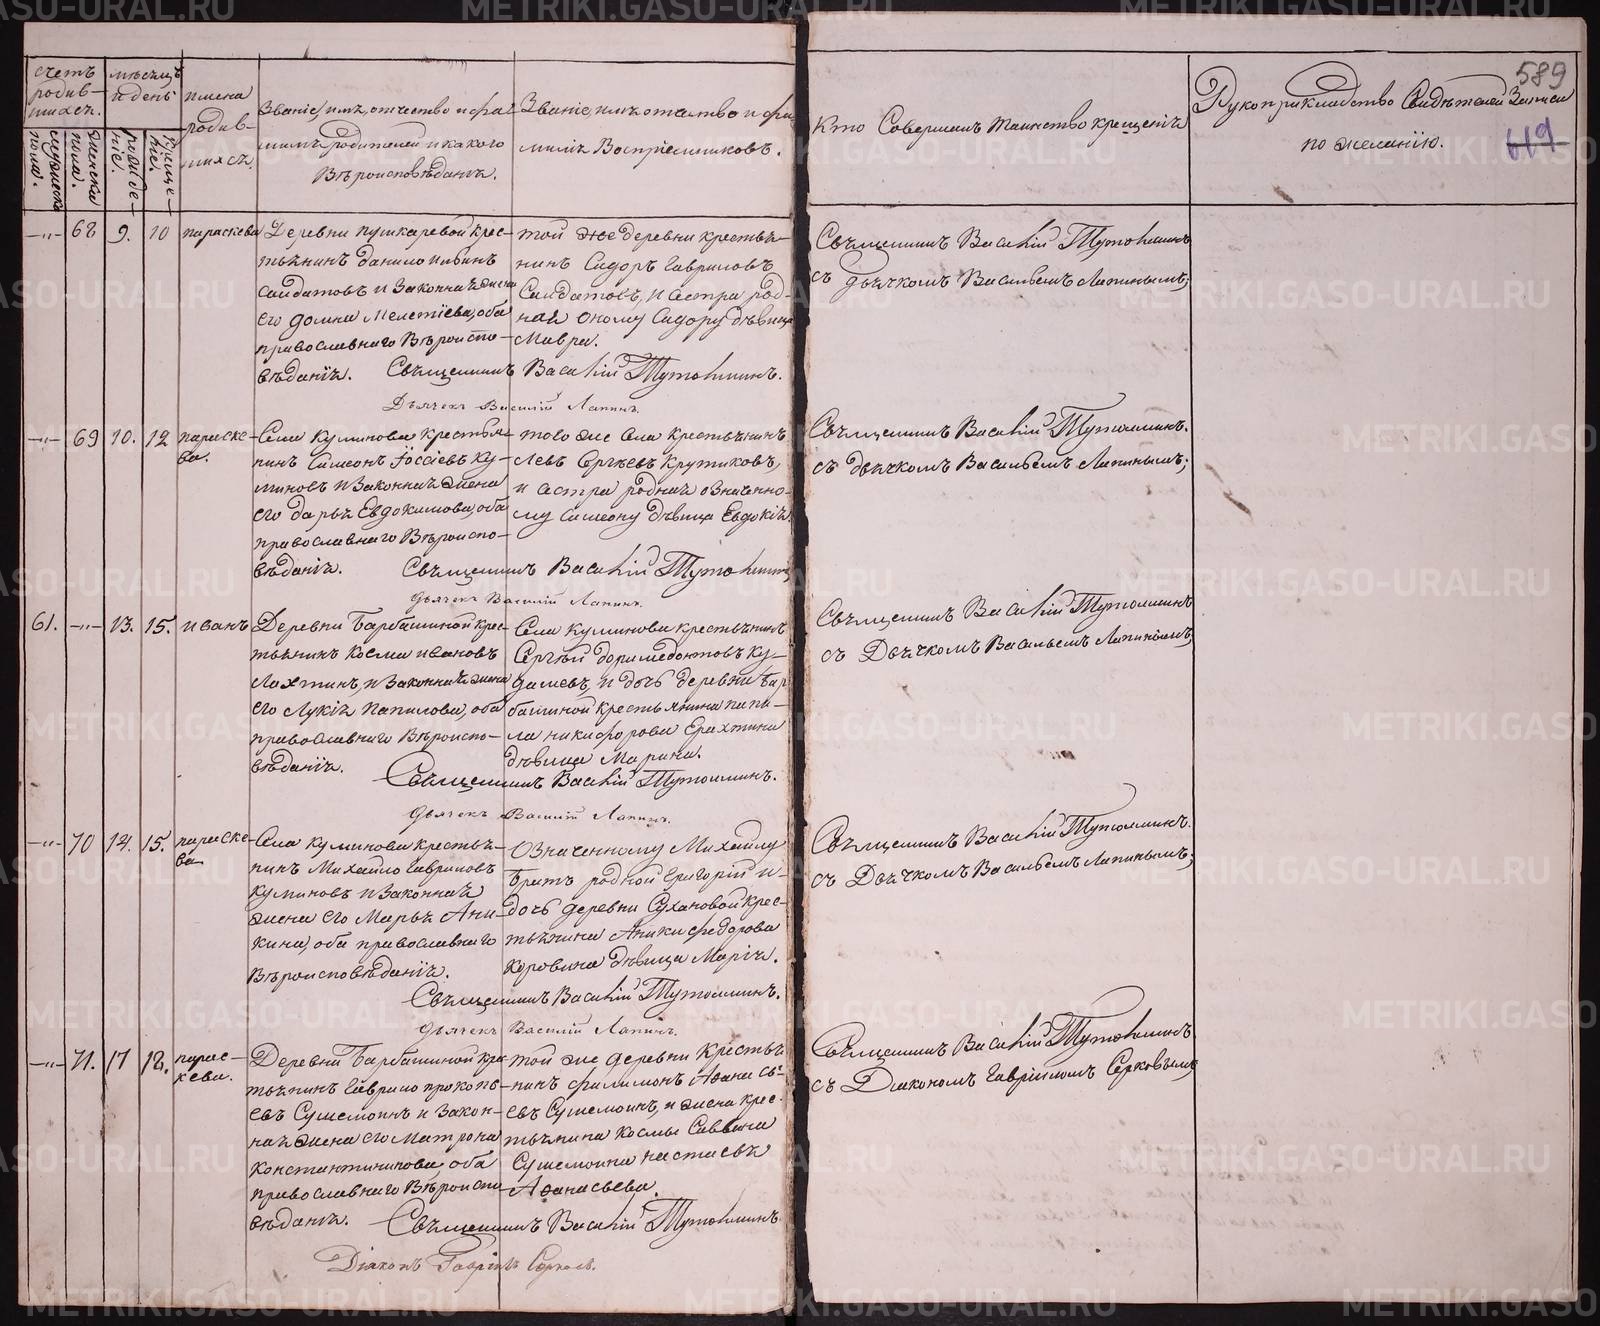 счетъ родившихся.
мужеска пола.
женска пола.
мѣсяцъ и день
рожденіе.
крещеніе.
имена родившихся.
Званіе, имя, отчество и фамилія родителей и какого Вѣроисповѣданія.
Званіе, имя отчество и фамилія Воспріемниковъ.
Кто Совершалъ таинство крещенія
Рукоприкладство Свидѣтелей Записи
по желанію.
589
619
68 9. 10 параскева
Деревни пушкаревой крес-
тьянинъ данило ильинъ
Солдатовъ и Законная жена
его домна Мелетіева, оба
православнаго Вѣроиспо-
вѣданія.
той же деревни крестья-
нинъ Сидоръ Гавриловъ
Солдатовъ, и сестра род-
ная оному Сидору дѣвица
Мавра.
Священникъ Василій Тутолминъ.
Дьячекъ Василій Лапинъ.
Священникъ Василій Тутолминъ
съ дьячкомъ Васильемъ Лапинымъ;
69 10. 12 параске-
ва.
Села куминова крестья-
нинъ Симеонъ
миновъ и Законная жена
его дарья Евдокимова, оба
православнаго Вѣроиспо-
вѣданія.
того же Села крестьянинъ
Левъ Сергѣевъ Крутиковъ,
и сестра родная означенно-
му Симеону дѣвица Евдокія.
Священникъ Василій Тутолминъ
дьячекъ Василій Лапинъ.
Священникъ Василій Тутолминъ.
съ дьячкомъ Васильемъ Лапинымъ;
61. 13. 15. иванъ
Деревни Барбашиной крес-
тьянинъ Косма ивановъ
Лахтинъ, и Законная жена
его Лукія Папилова, оба
православнаго Вѣроиспо-
вѣданія.
Села куминова крестьянинъ
Сергѣй доримедонтовъ ку-
и дочь деревни Бар
башиной крестьянина папи-
ла никифорова Ерахтина
дѣвица Марина.
Священникъ Василій Тутолминъ.
дьячекъ Василій Лапинъ.
Священникъ Василій Тутолминъ
съ Дьячкомъ Васильемъ Лапинымъ;
70 14. 15. параске-
ва
Села куминова крестья-
нинъ Михайло Гавриловъ
куминовъ и Законная
жена его Марья Ани-
кина, оба православнаго
Вѣроисповѣданія.
Означенному Михайлу
братъ родной Григорій и
дочь деревни Сухановой крес-
тьянина Аники федорова
Коровина дѣвица Марія.
Священникъ Василій Тутолминъ.
дьячекъ Василій Лапинъ.
Священникъ Василій Тутолминъ.
съ Дьячкомъ Васильемъ Лапинымъ;
71. 17 18. парас-
кева.
Деревни Барбашиной крес
тьянинъ Гаврило прокопь-
евъ и Закон-
ная жена его Матрона
Константинова, оба
православнаго Вѣроиспо-
вѣданія.
той же деревни Крестья
нинъ филимонъ Афанась-
евъ и жена крес-
тьянина Космы Саввина
настасья
Афанасьева.
Священникъ Василій Тутолминъ
Діаконъ Гавріилъ Серковъ.
Священникъ Василій Тутолминъ.
съ Діакономъ Гавріиломъ Серковымъ
METRIKI.GASO-URAL.RU